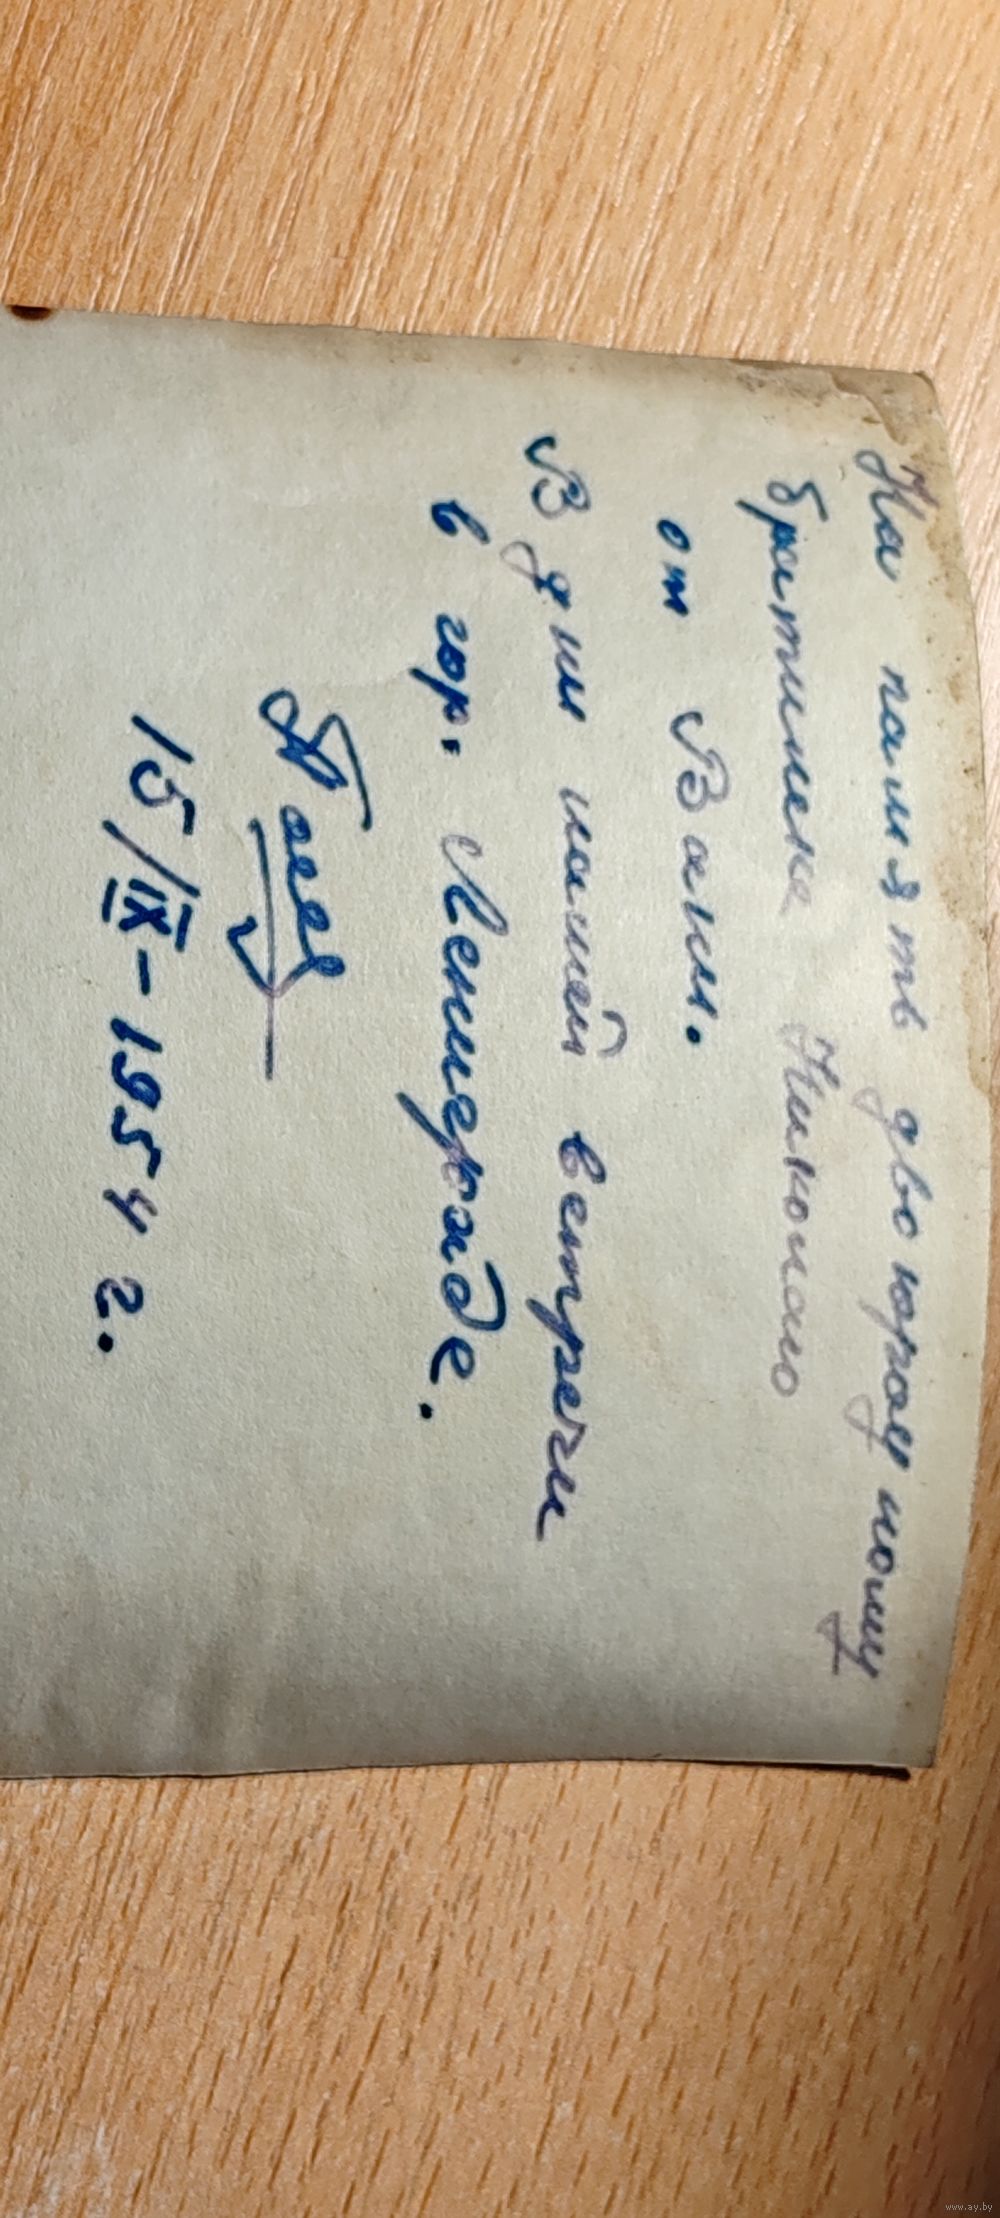 На память двоюродному
братишке Николаю
от Вани.
В дни нашей встречи
в гор. Ленинграде.
15/IX-1954 г.
www.ay.by